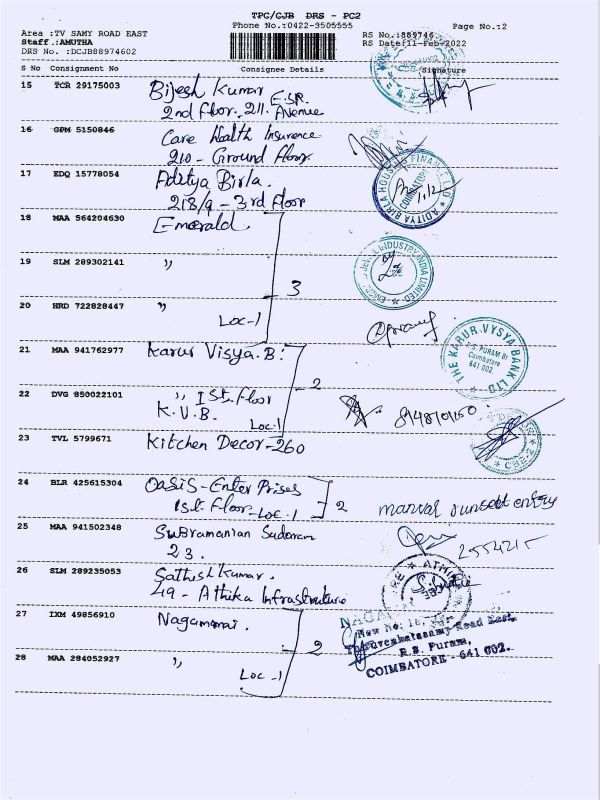 TPC/CJB DRS - PC2
Phone No.:0422-3505555
Page No.:2
Area :TV SAMY ROAD EAST
Staff.:AMUTHA
DRS No. :DCJB88974602
RS No.:889746
RS Date:11-Feb-2022
S No Consignment No Consignee Details Signature
15 TCR 29175003 Bijesh Kumar E.S.R.
2nd floor. 211. Avenue
16 GPM 5150846 Care Health Insurence
210 - Ground floor
17 EDQ 15778054 Aditya Birla.
218/9 - 3rd Floor
18 MAA 564204630 Emerald
19 SLM 289302141 "
3
20 HRD 722828447 "
Loc-1
21 MAA 941762977 Karur Visya.B.
2
22 DVG 850022101 " 1st floor
K.V.B. Loc.1
THE KARUR VYSYA BANK LTD
R.S PURAM Br
Coimbatore
641 002
23 TVL 5799671 Kitchen Decor-260
24 BLR 425615304 Oasis-Enter Prises
1st. Floor-Loc.1 2
25 MAA 941502348 Subramanian Sudaram
23.
2554215
26 SLM 289235053 Sathish Kumar.
49 - Athika Infrastruture
27 IXM 49856910 Nagamani.
2
28 MAA 284052927 "
Loc-1
New No: 18
Thiruvenkatasamy Road East,
R.S. Puram,
COIMBATORE - 641 002.